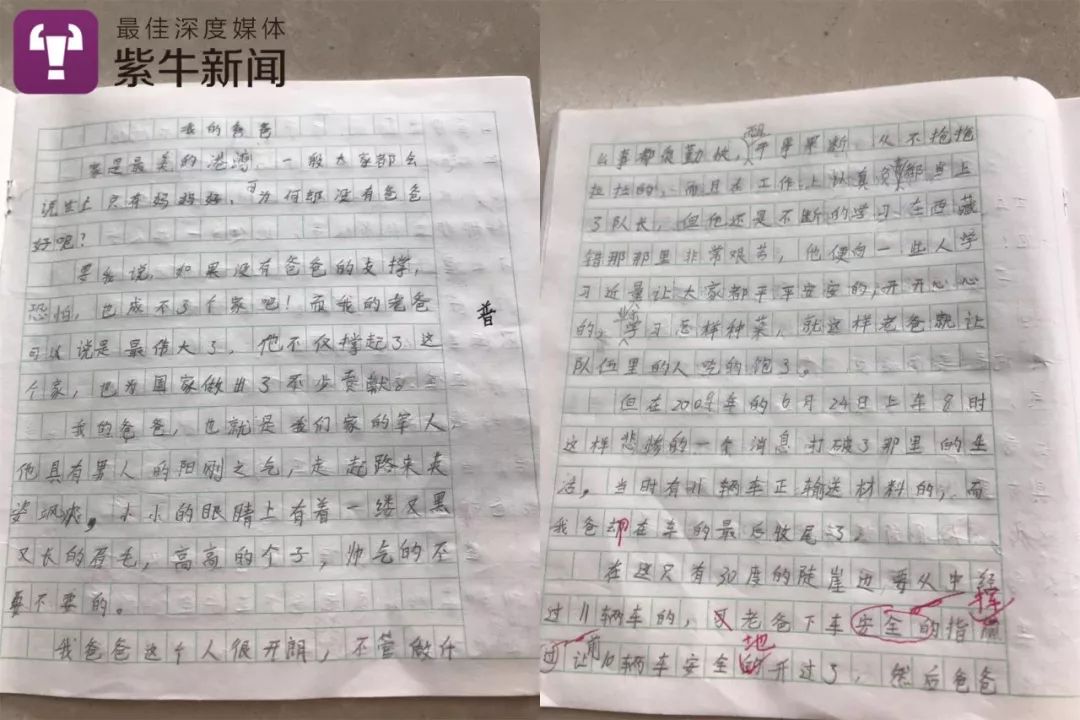 最佳深度媒体
紫牛新闻
我的爸爸
家是最美的港湾，一般大家都会
说世上只有妈妈好，可为何却没有爸爸
好呢？
要我说，如果没有爸爸的支撑，
恐怕，也成不了个家吧！而我的老爸
可以说是最伟大了，他不仅撑起了这
个家，也为国家做出了不少贡献。
我的爸爸，也就是我们家的军人，
他具有男人的阳刚之气，走起路来英
姿飒爽，小小的眼睛上有着一缕又黑
又长的眉毛，高高的个子，帅气的不
要不要的。
我爸爸这个人很开朗，不管做什
普
么事都很勤快，而且干事果断，从不拖拖
拉拉的，而且在工作上认真负责都当上
了队长，但他还是不断的学习在西藏
错那那里非常艰苦，他便向一些人学
习近量让大家都平平安安的，开开心心
的。学习怎样种菜，就这样老爸就让
队伍里的人吃的饱了。
但在200年的6月24日上午8时
这样悲惨的一个消息打破了那里的生
活。当时有11辆车正输送材料的，而
我爸却在车的最后收尾了。
在这只有30度的陡崖边要从中经
过11辆车的，又老爸下车安全的指挥
前让10辆车安全地开过了，然后爸爸